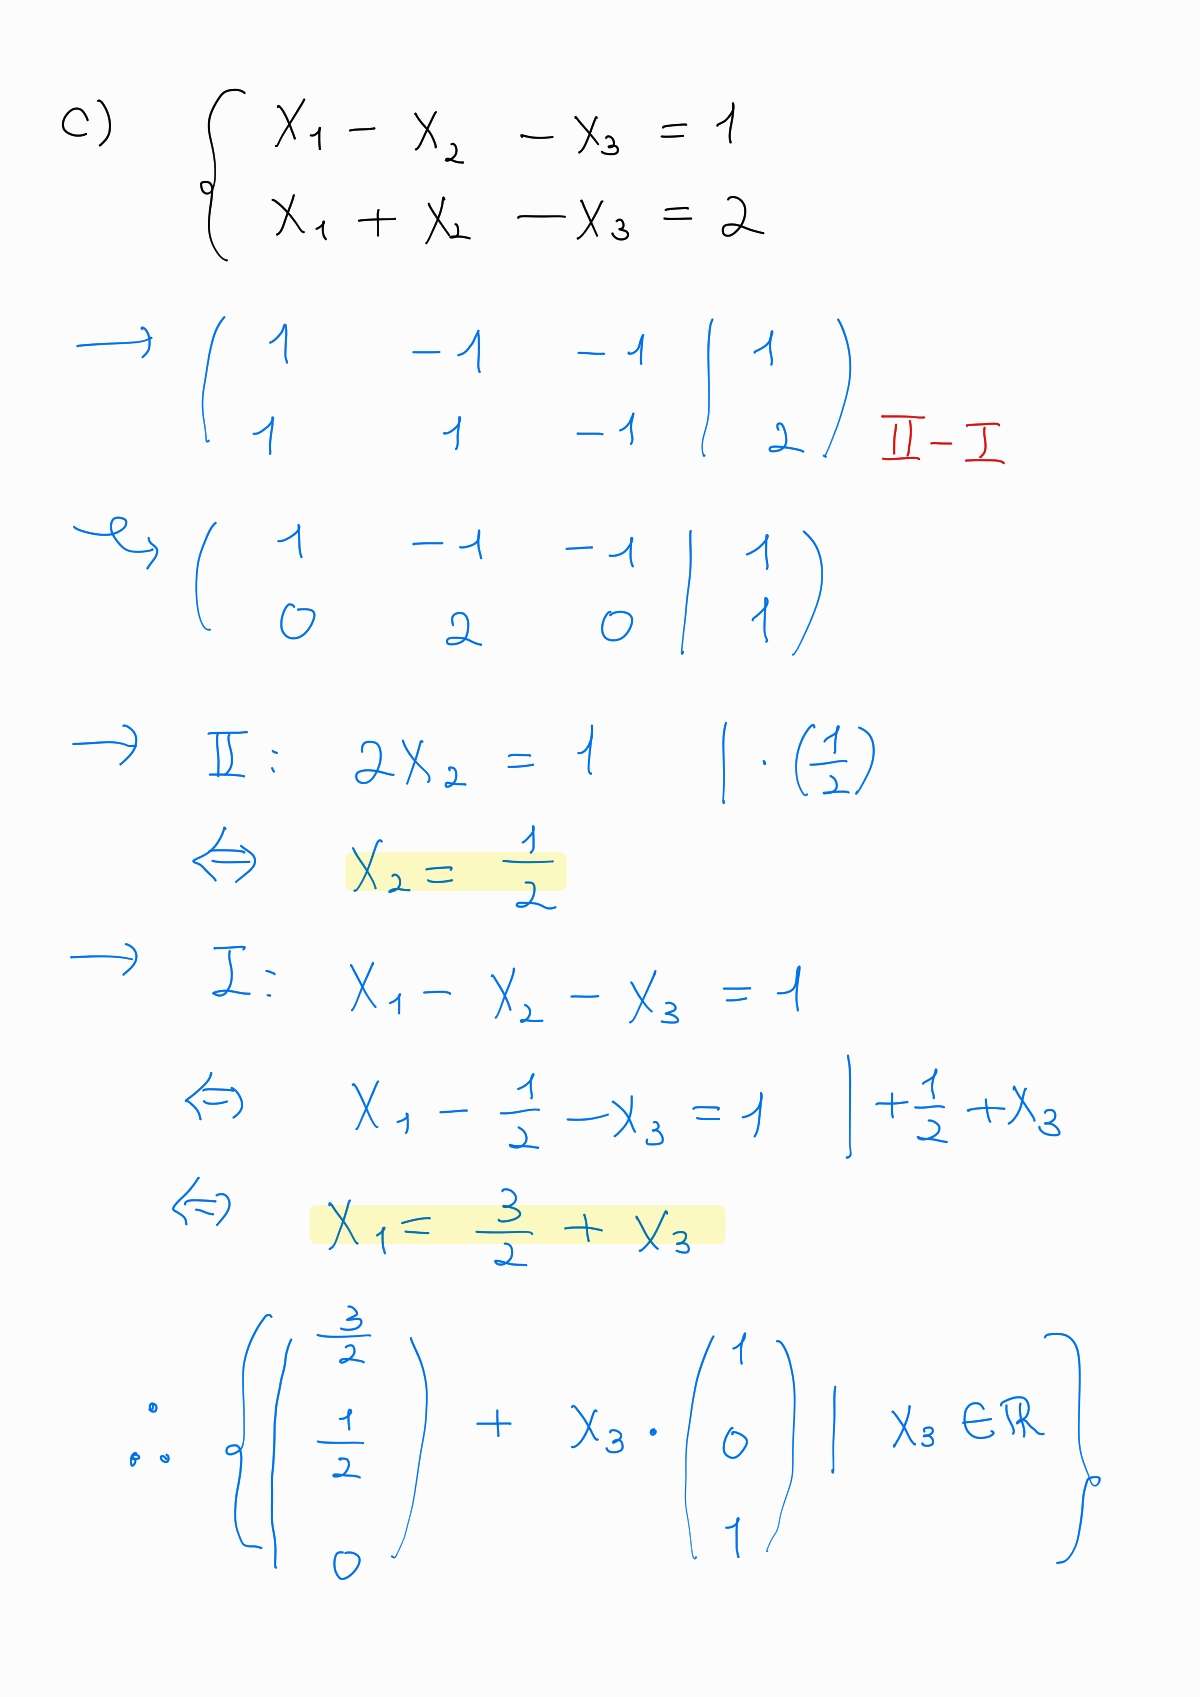 c) { x₁ - x₂ - x₃ = 1
x₁ + x₂ - x₃ = 2
→ ( 1 -1 -1 | 1 )
( 1 1 -1 | 2 ) II - I
⤳ ( 1 -1 -1 | 1 )
( 0 2 0 | 1 )
→ II: 2x₂ = 1 | · (1/2)
⇔ x₂ = 1/2
→ I: x₁ - x₂ - x₃ = 1
⇔ x₁ - 1/2 - x₃ = 1 | + 1/2 + x₃
⇔ x₁ = 3/2 + x₃
∴ { ( 3/2 1/2 0 ) + x₃ · ( 1 0 1 ) | x₃ ∈ ℝ }